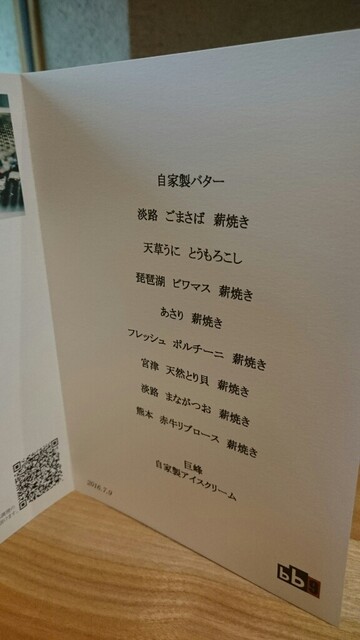 自家製バター
淡路 ごまさば 薪焼き
天草うに とうもろこし
琵琶湖 ビワマス 薪焼き
あさり 薪焼き
フレッシュ ポルチーニ 薪焼き
宮津 天然とり貝 薪焼き
淡路 まながつお 薪焼き
熊本 赤牛リブロース 薪焼き
巨峰
自家製アイスクリーム
2016.7.9
bb9